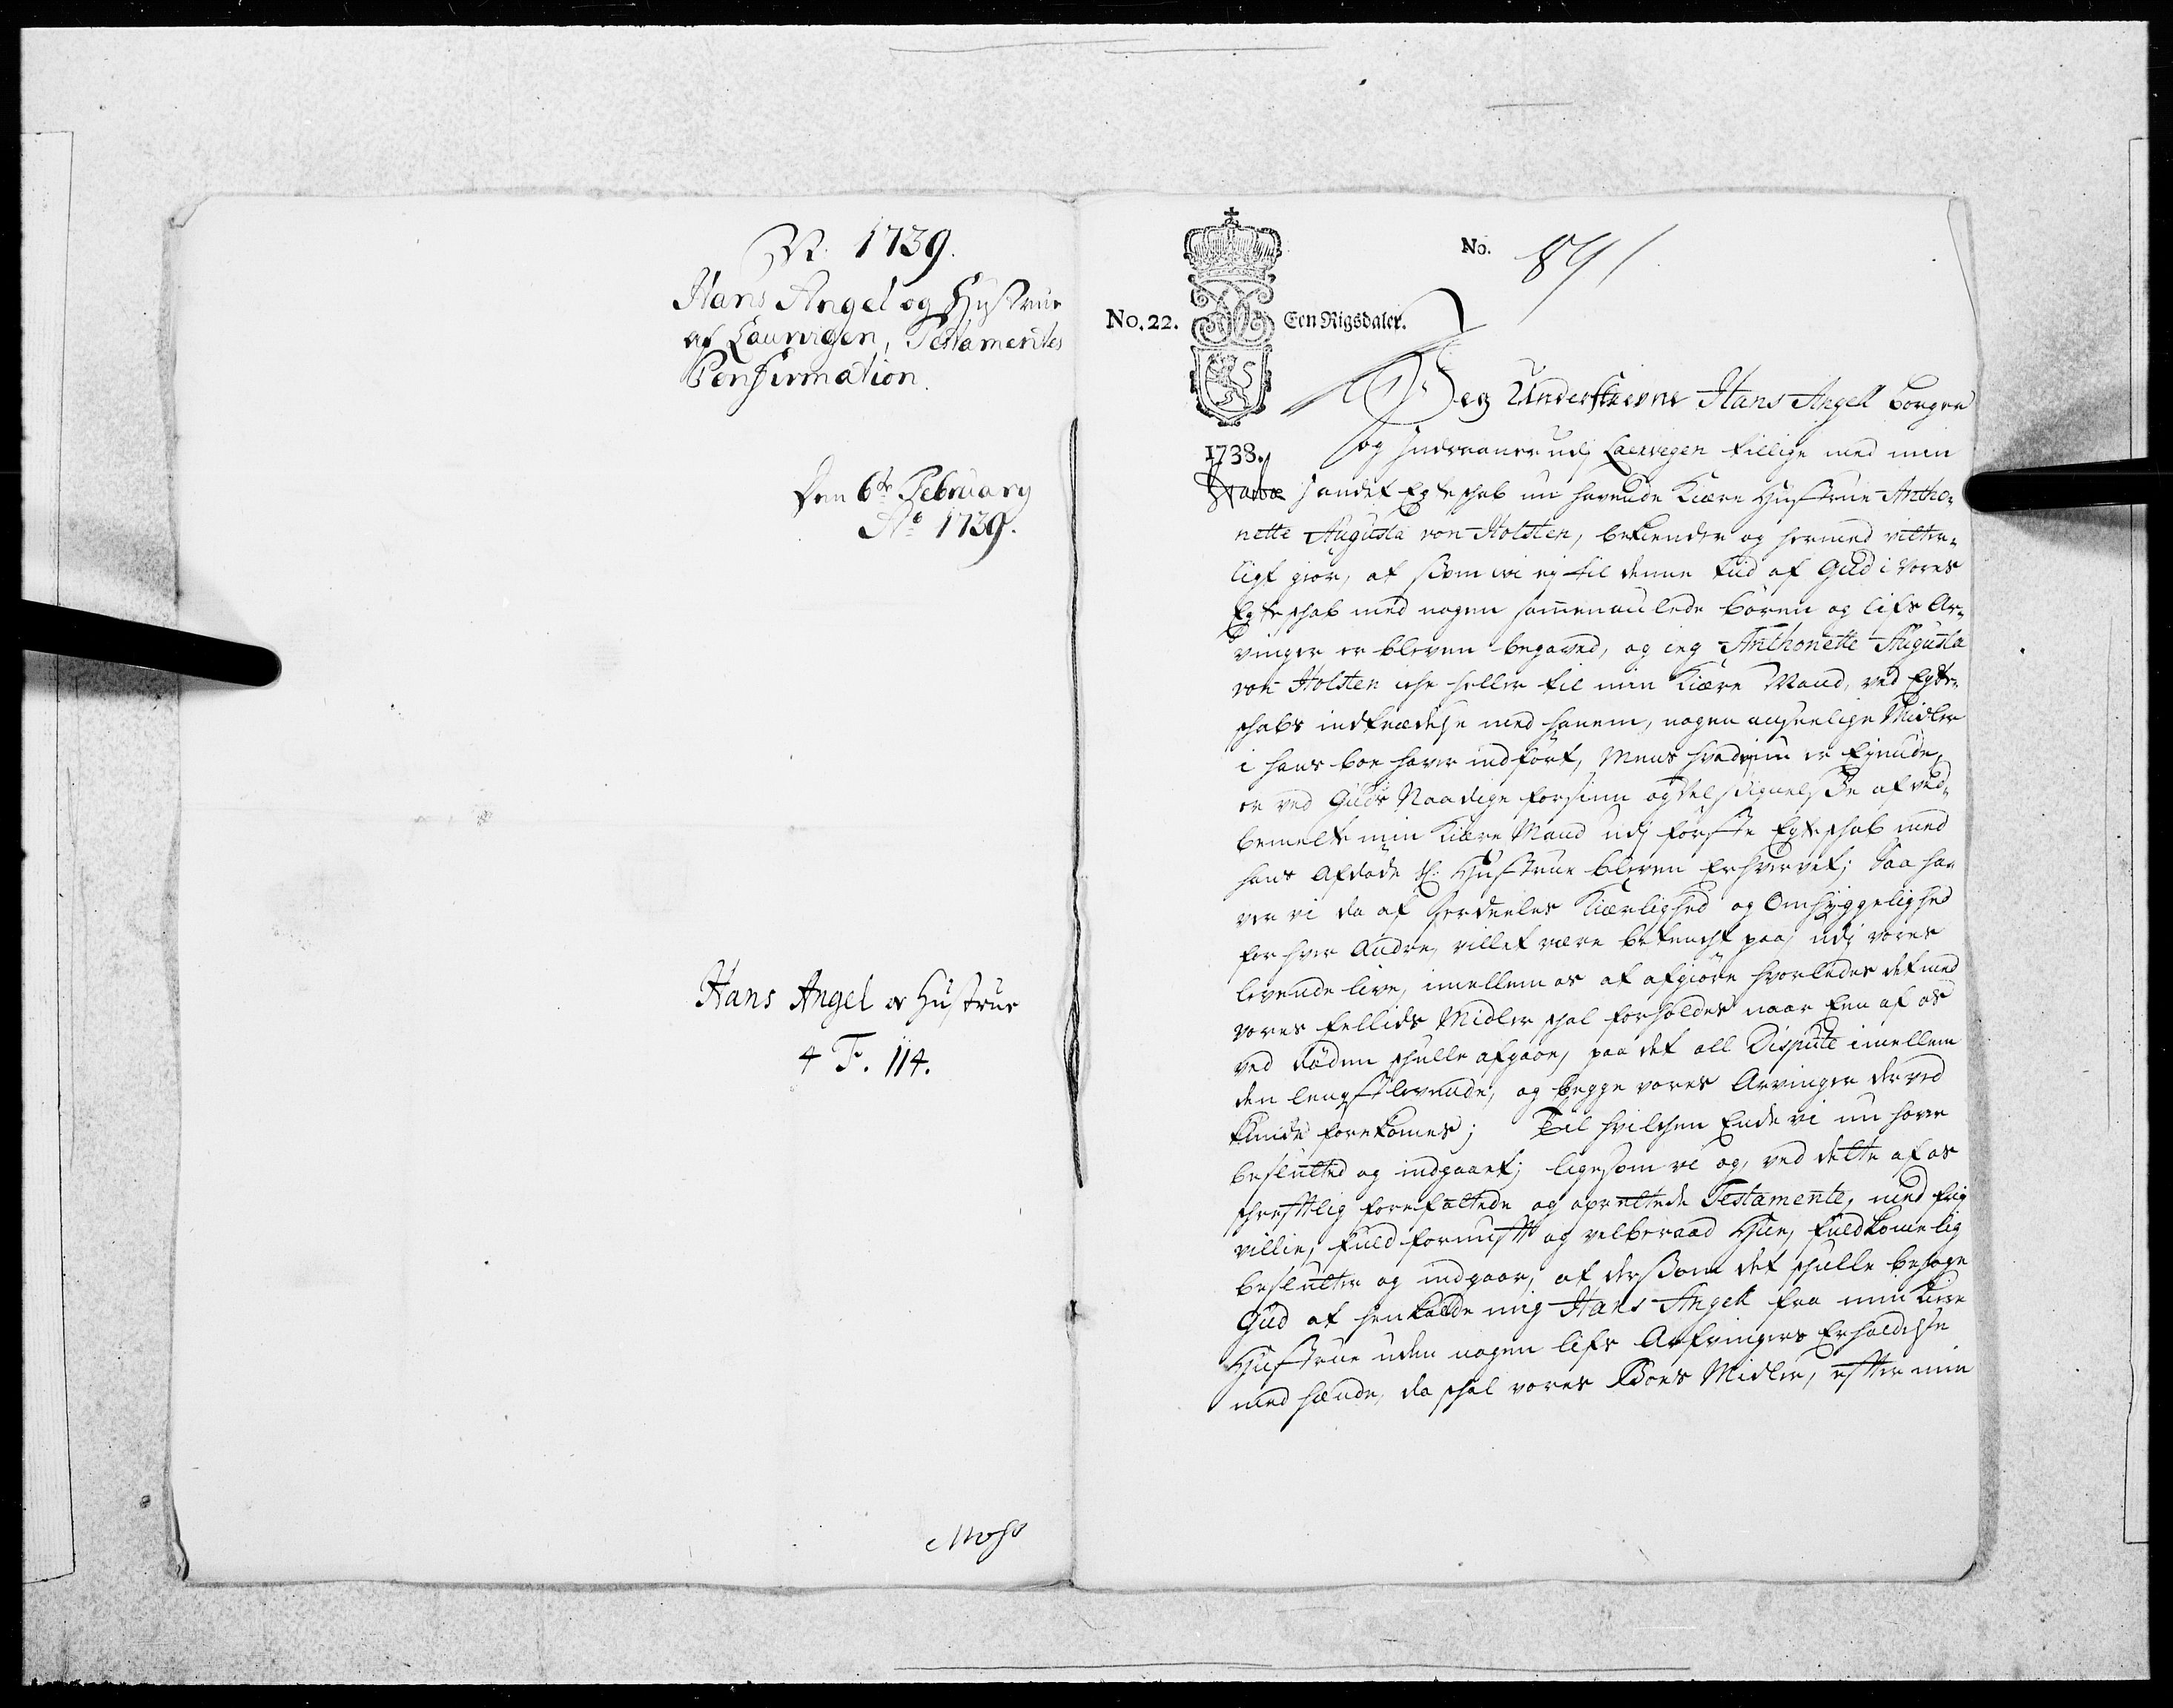 N. 1739.
Hans Angel og Hustrue
af Laurvigen, Testamentes
Confirmation.
Den 6te February
Ao 1739.
Hans Angel & Hustrue
4 F. 114.
No. 891
No. 22. Een Rigsdaler.
1738.
Jeg Underskrevne Hans Angell borger
og Indvaaner udj Laurvigen tillige med min
i andet Egteskab nu havende Kiære Hustrue Antho-
nette Augusta von Holsten, bekiender og hermed vitter-
ligt giør, at siden vi ej til denne tiid af Gud i vores
Egteskab med nogen sammenaulede børen og lifs Ar-
vinger er bleven begaved, og jeg Anthonette Augusta
von Holsten iche heller til min Kiære Mand, ved Egte-
skabs indtrædelse med hannem, nogen anseelige Midler
i hans boe haver indført, Mens hvad vi nu er Ejende,
er ved Guds Naadige forsiun og velsignelse af ved-
bemelte min Kiære Mand udj første Egteskab med
hans Afdøde Sl. Hustrue bleven Erhvervet; Saa ha-
ver vi da af serdeeles Kiærlighed og Omhyggelighed
for hver Andre, villet være betencht paa, udj vores
levende live, imellem os at afgiøre hvorledes det med
vores fellids Midler skal forholdes naar Een af os
ved døden skulle afgaae, paa det all Dispute imellem
den lengstlevende, og begge vores Arvinger derved
kunde forekomes; Til hvilchen Ende vi nu haver
beslutted og indgaaet; ligesom vi og, ved dette af os
skrefttlig forefattede og oprettede Testamente, med frj
villie, fuld fornufft og velberaad Hue, fuldkomelig
beslutter og indgaar, at dersom det skulle behage
Gud at henkalde mig Hans Angell fra min Kiere
Hustrue uden nogen lifs Arfvingers Erholdelse
med hende, da skal vores Boes Midler, efter min